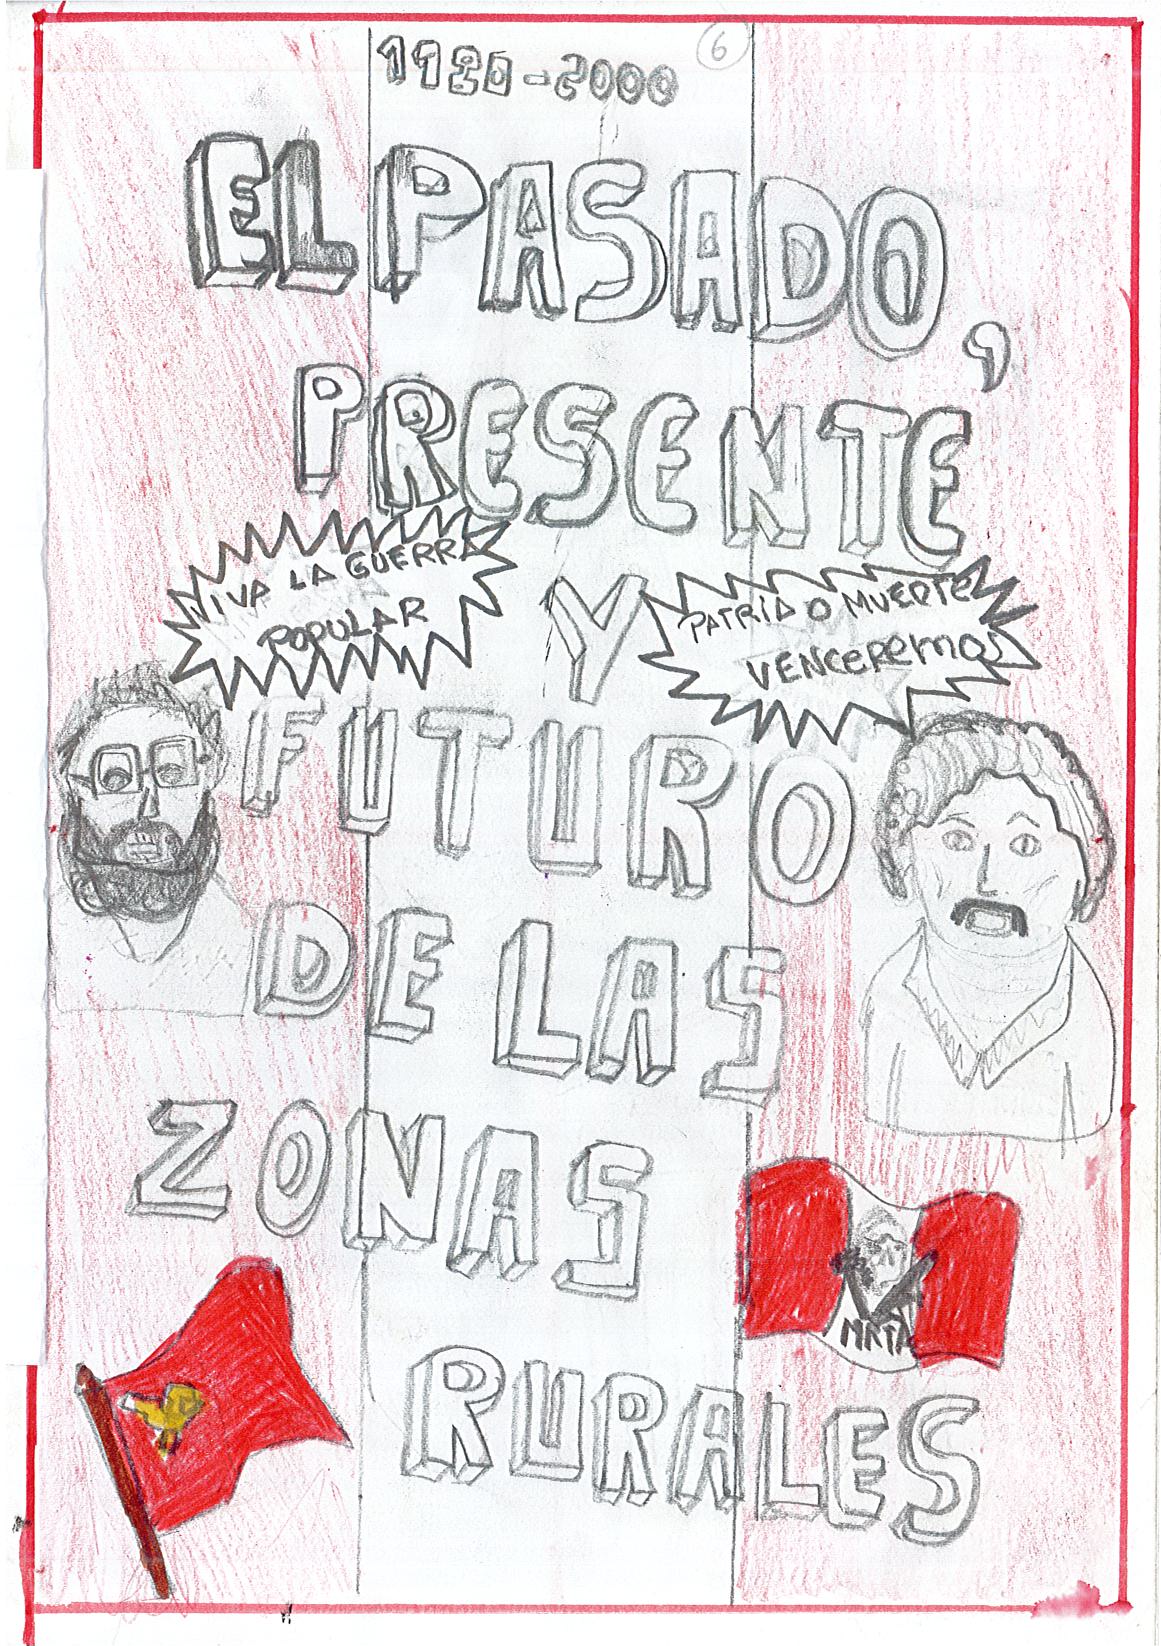 6
1980-2000
EL PASADO,
PRESENTE
VIVA LA GUERRA
POPULAR
Y
PATRIA O MUERTE
VENCEREMOS
FUTURO
DE LAS
ZONAS
MRTA
RURALES